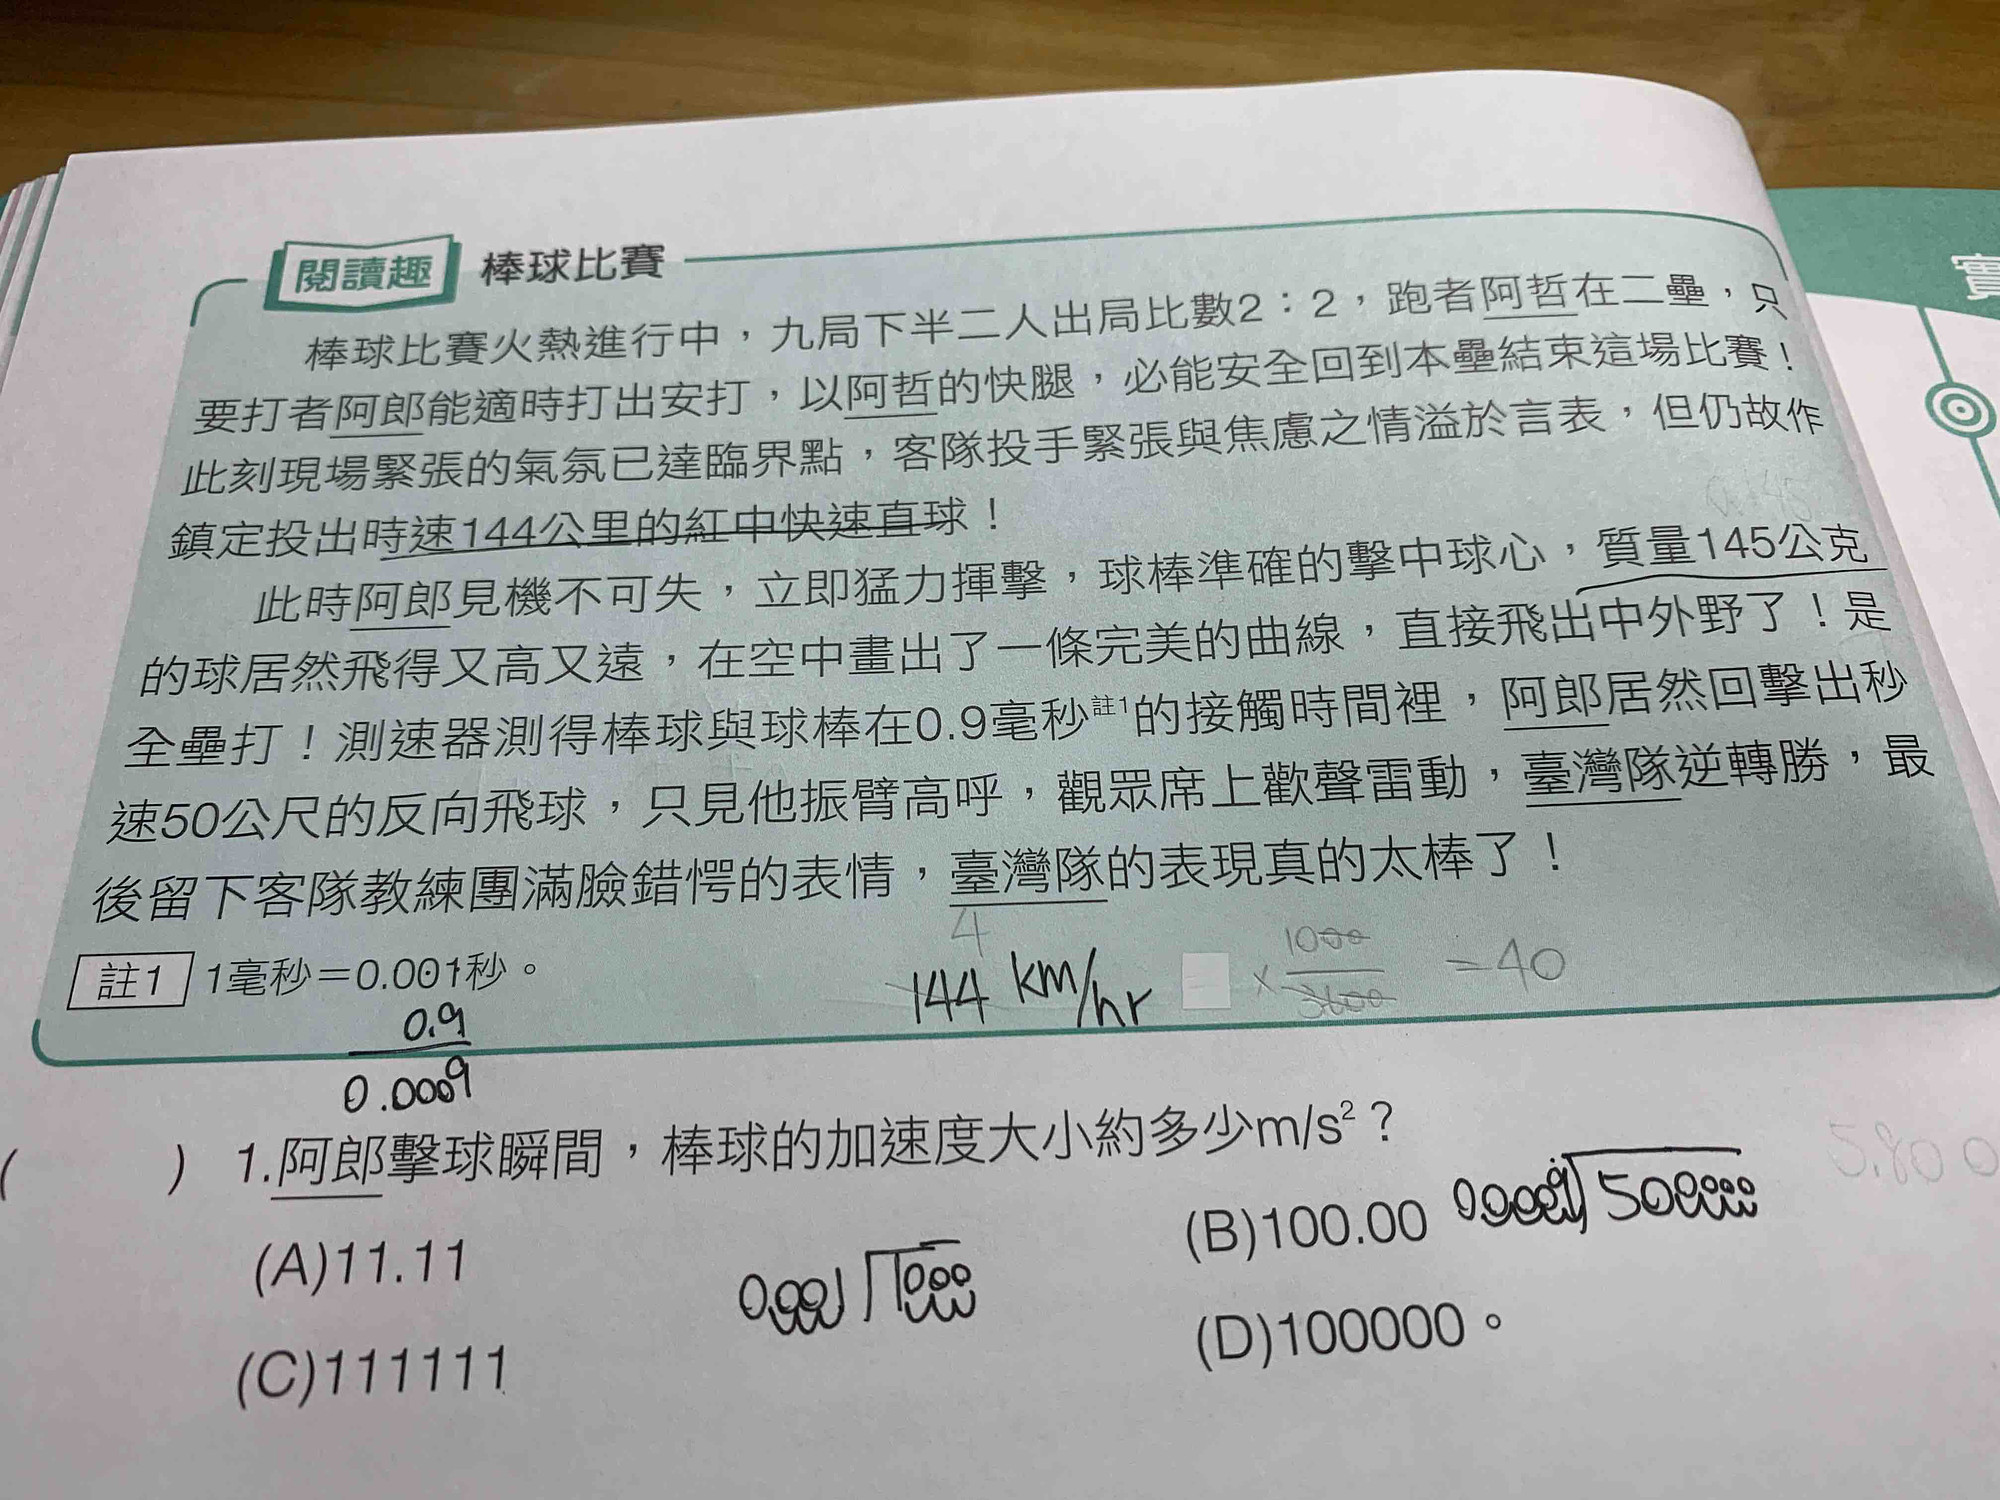 實
閱讀趣 棒球比賽
棒球比賽火熱進行中，九局下半二人出局比數2：2，跑者阿哲在二壘，只
要打者阿郎能適時打出安打，以阿哲的快腿，必能安全回到本壘結束這場比賽！
此刻現場緊張的氣氛已達臨界點，客隊投手緊張與焦慮之情溢於言表，但仍故作
鎮定投出時速144公里的紅中快速直球！
此時阿郎見機不可失，立即猛力揮擊，球棒準確的擊中球心，質量145公克
的球居然飛得又高又遠，在空中畫出了一條完美的曲線，直接飛出中外野了！是
全壘打！測速器測得棒球與球棒在0.9毫秒註1的接觸時間裡，阿郎居然回擊出秒
速50公尺的反向飛球，只見他振臂高呼，觀眾席上歡聲雷動，臺灣隊逆轉勝，最
後留下客隊教練團滿臉錯愕的表情，臺灣隊的表現真的太棒了！
註1 1毫秒＝0.001秒。
4
144 km/hr × 1000/3600 = 40
0.9
0.0009
( ) 1.阿郎擊球瞬間，棒球的加速度大小約多少m/s²？
(A)11.11 (B)100.00
(C)111111 (D)100000。